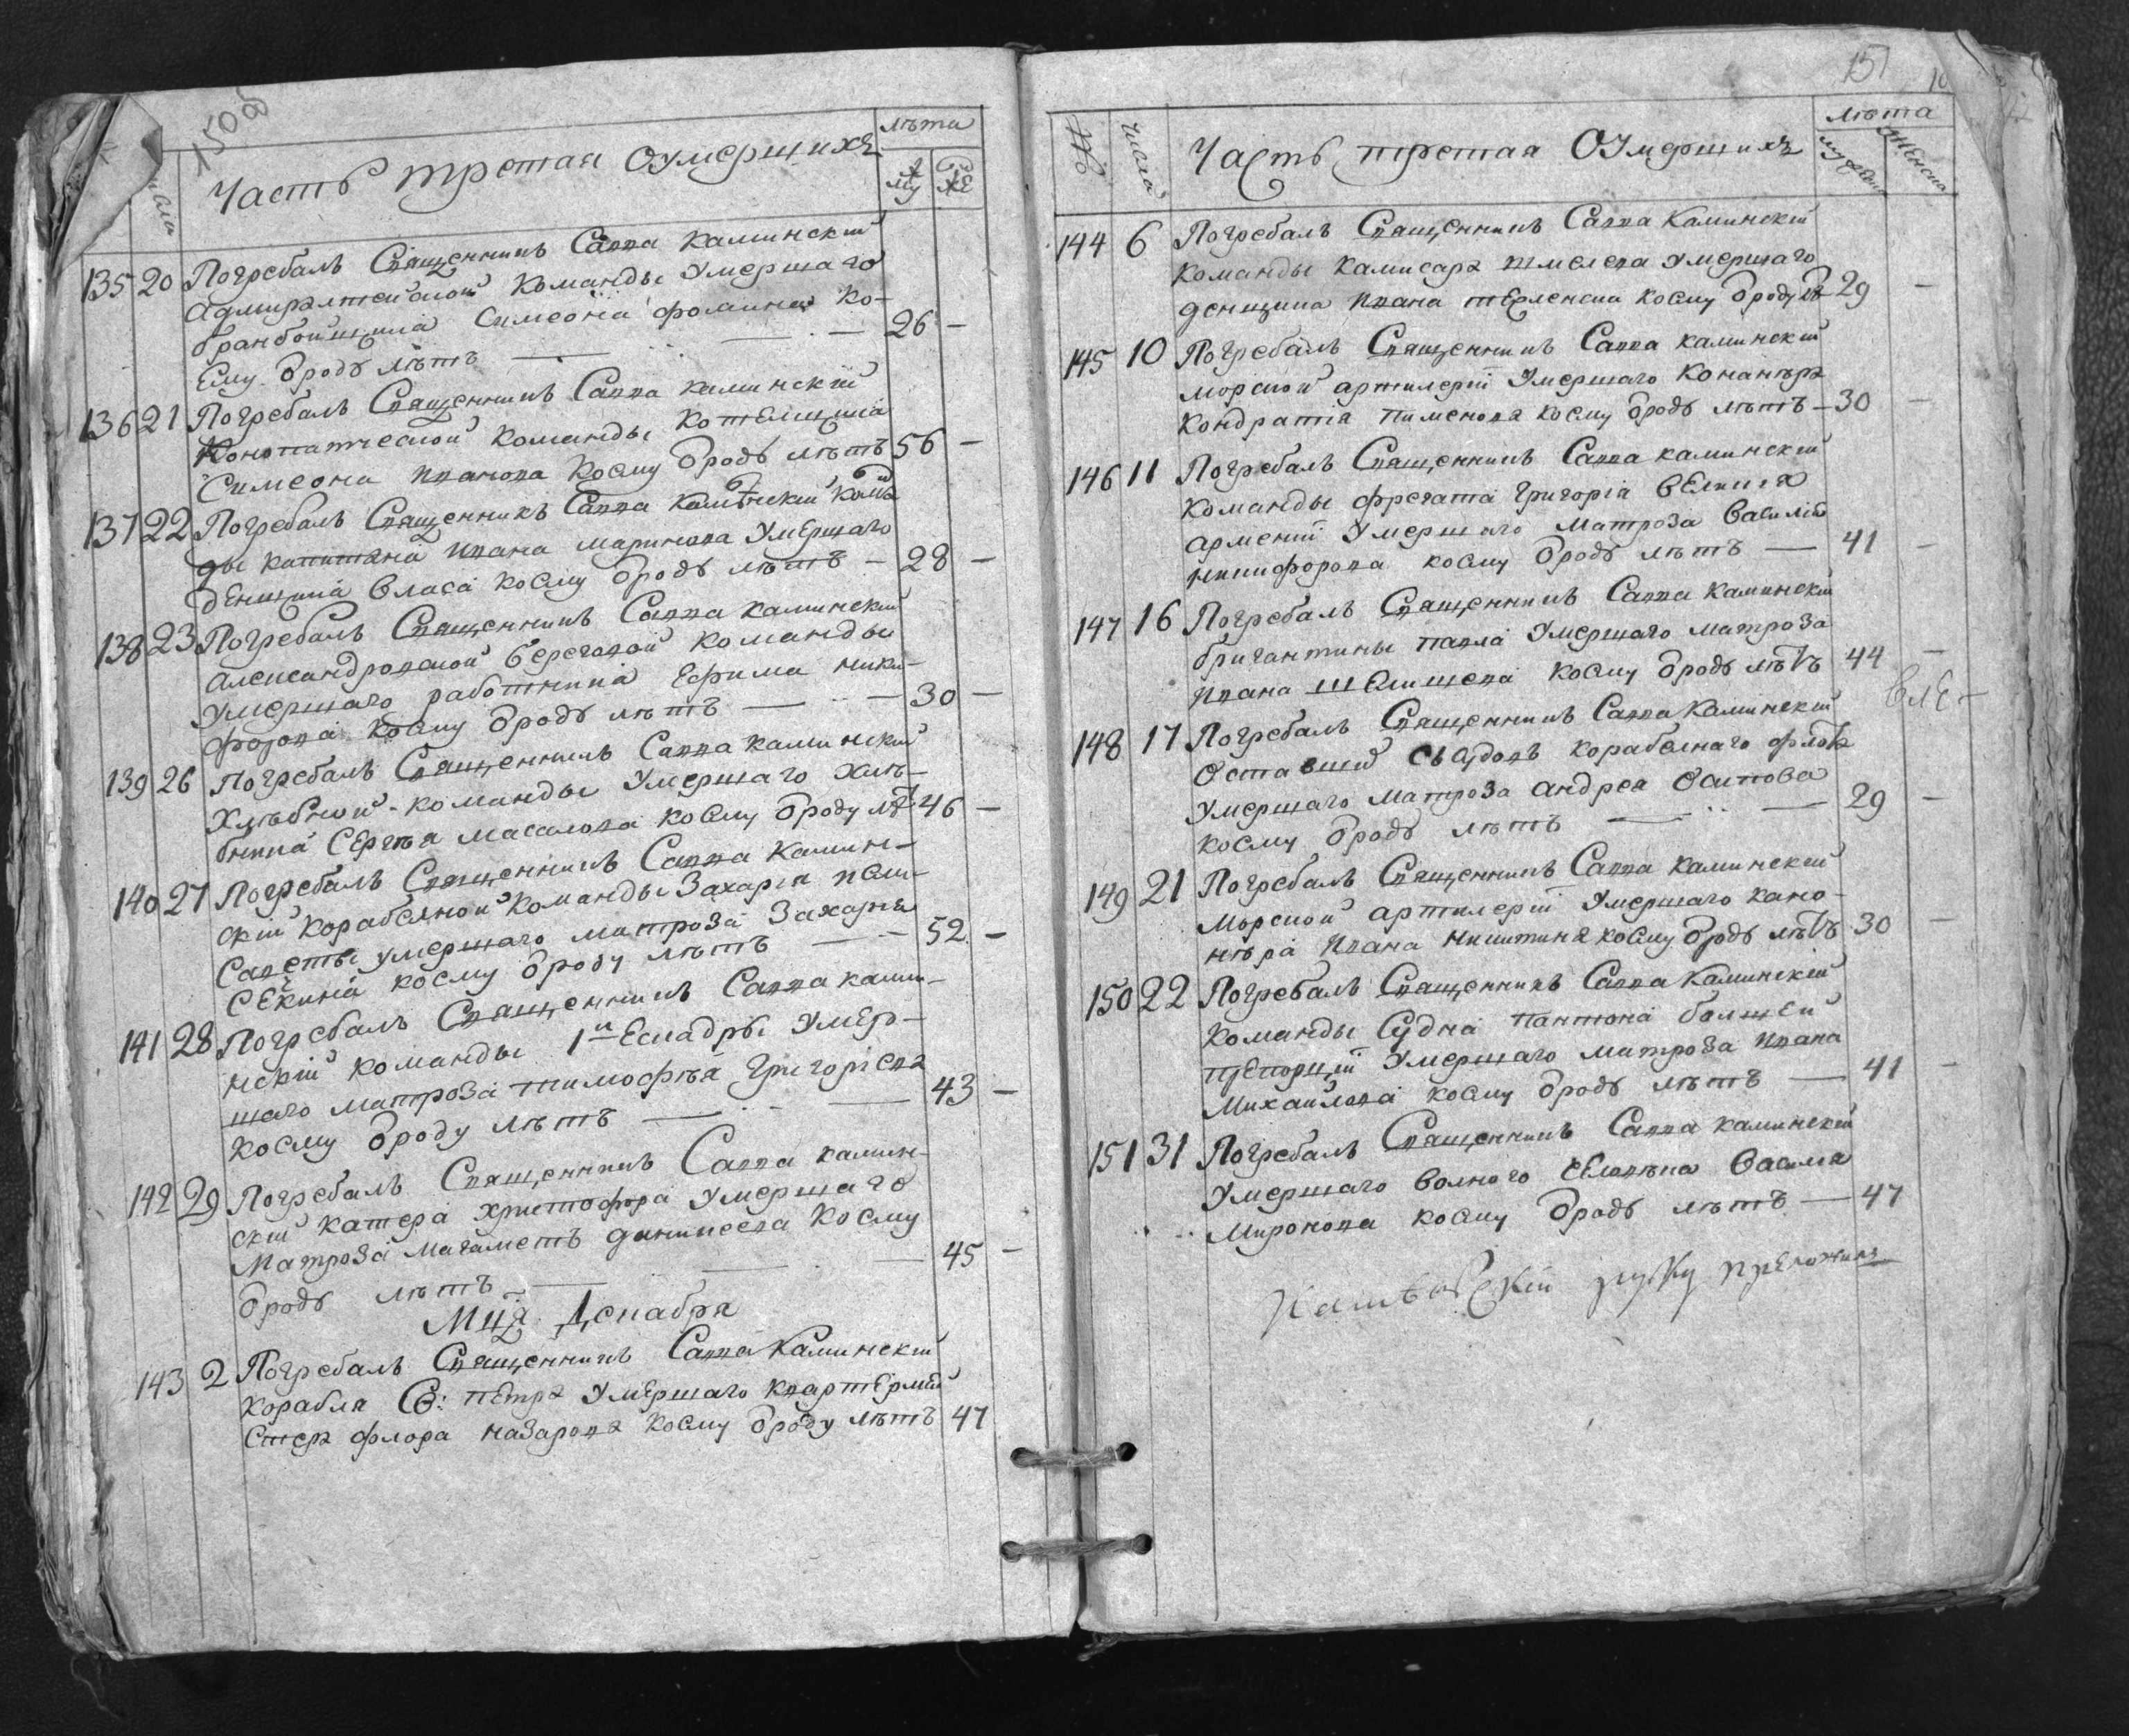 150 об
лѣта
Часть третая О умершихъ
му же
135 20 Погребалъ Священникъ Савва Каминскій
адмиралтейской команды Умершаго
Симеона фомина ко-
Ему ѿроду лѣтъ — 26 —
136 21 Погребалъ Священникъ Савва каминскій
Конопатческой команды котелщика
Симеона иванова коему ѿроду лѣтъ 56 —
137 22 Погребалъ Священникъ Савва Каминскій коман
ды капитана ивана маринова Умершаго
денщика власа коему ѿроду лѣтъ — 28 —
138 23 Погребалъ Священникъ Савва каминскій
александровской береговой команды
Умершаго работника Ефима ники-
форова коему ѿроду лѣтъ — 30 —
139 26 Погребалъ Священникъ Савва каминскій
Хлѣбной команды Умершаго хлѣ-
бника Сергѣя масалова коему ѿроду лѣт 46 —
140 27 Погребалъ Священникъ Савва камин-
скій корабелной команды Захарія иели-
саветы умершаго матроза Захарія
Секина коему ѿроду лѣтъ — 52 —
141 28 Погребалъ Священникъ Савва ками-
нскій команды 1й Ескадры Умер-
шаго матроза тимофѣя Григоріева
коему ѿроду лѣтъ — 43 —
142 29 Погребалъ Священникъ Савва камин-
скій катера христофора Умершаго
матроза магаметъ даникеева коему
ѿроду лѣтъ — 45 —
Мца Декабря
143 2 Погребалъ Священникъ Савва Каминскій
корабля Св: петра Умершаго квартерми
стера флора назарова коему ѿроду лѣтъ 47
151
лѣта
№ числа Часть третая О Умершихъ
мужеска женска
144 6 Погребалъ Священникъ Савва Каминскій
команды камисара шмелева Умершаго
денщика ивана коему ѿроду лѣ 29 —
145 10 Погребалъ Священникъ Савва каминскій
морской артилеріи Умершаго Конанера
Кондратія пименова коему ѿроду лѣтъ — 30 —
146 11 Погребалъ Священникъ Савва каминскій
команды фрегата Григорія великія
арменіи Умершаго матроза василія
никифорова коему ѿроду лѣтъ — 41 —
147 16 Погребалъ Священникъ Савва каминскій
бригантины павла Умершаго матроза
ивана коему ѿроду лѣтъ 44 —
148 17 Погребалъ Священникъ Савва Каминскій
корабелнаго флота
Умершаго матроза андрея Осипова
коему ѿроду лѣтъ — 29 —
149 21 Погребалъ Священникъ Савва каминскій
Морской артилеріи Умершаго кано-
нѣра ивана никитина коему ѿроду лѣтъ 30 —
150 22 Погребалъ Священникъ Савва Каминскій
команды Судна пантона болшей
Умершаго матроза ивана
Михаилова коему ѿроду лѣтъ — 41 —
151 31 Погребалъ Священникъ Савва каминскій
Умершаго волного человѣка василия
Миронова коему ѿроду лѣтъ — 47
руку приложилъ